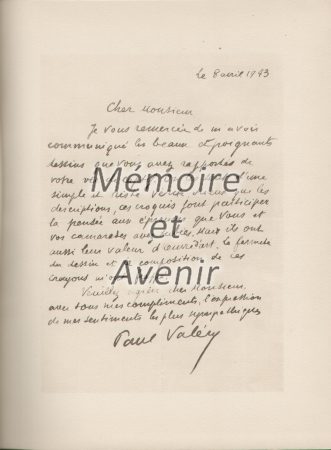 Le 8 avril 1943
Cher Monsieur
Je vous remercie de m'avoir
communiqué les beaux et poignants
dessins que vous avez rapportés de
votre vie d'une
simple et
descriptions, ces croquis font participer
la pensée aux que vous et
vos camarades Mais ils ont
aussi leur valeur d'œuvre d'art. la fermeté
du dessin et composition de ces
crayons
Veuillez cher Monsieur
avec tous mes compliments, l'expression
de mes sentiments les plus sympathiques
Paul Valéry
Mémoire
et
Avenir